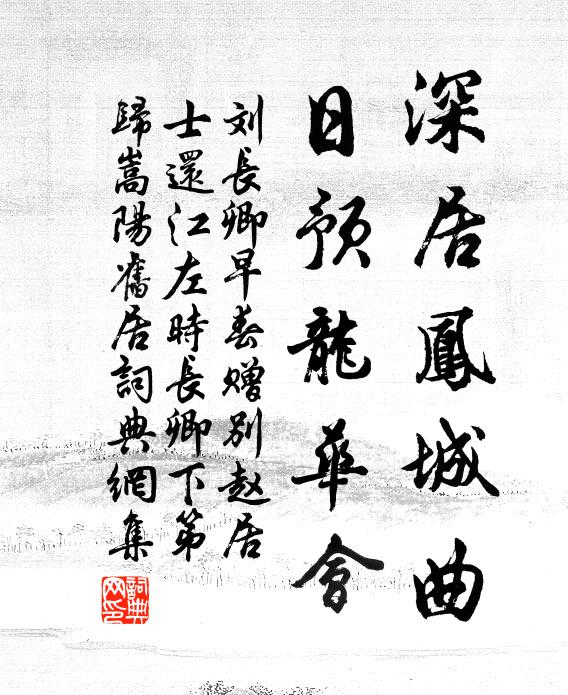 深居鳳城曲
日預龍華會
刘長卿早春赠别赵居
士還江左時長卿下第
歸嵩陽舊居詞典網集